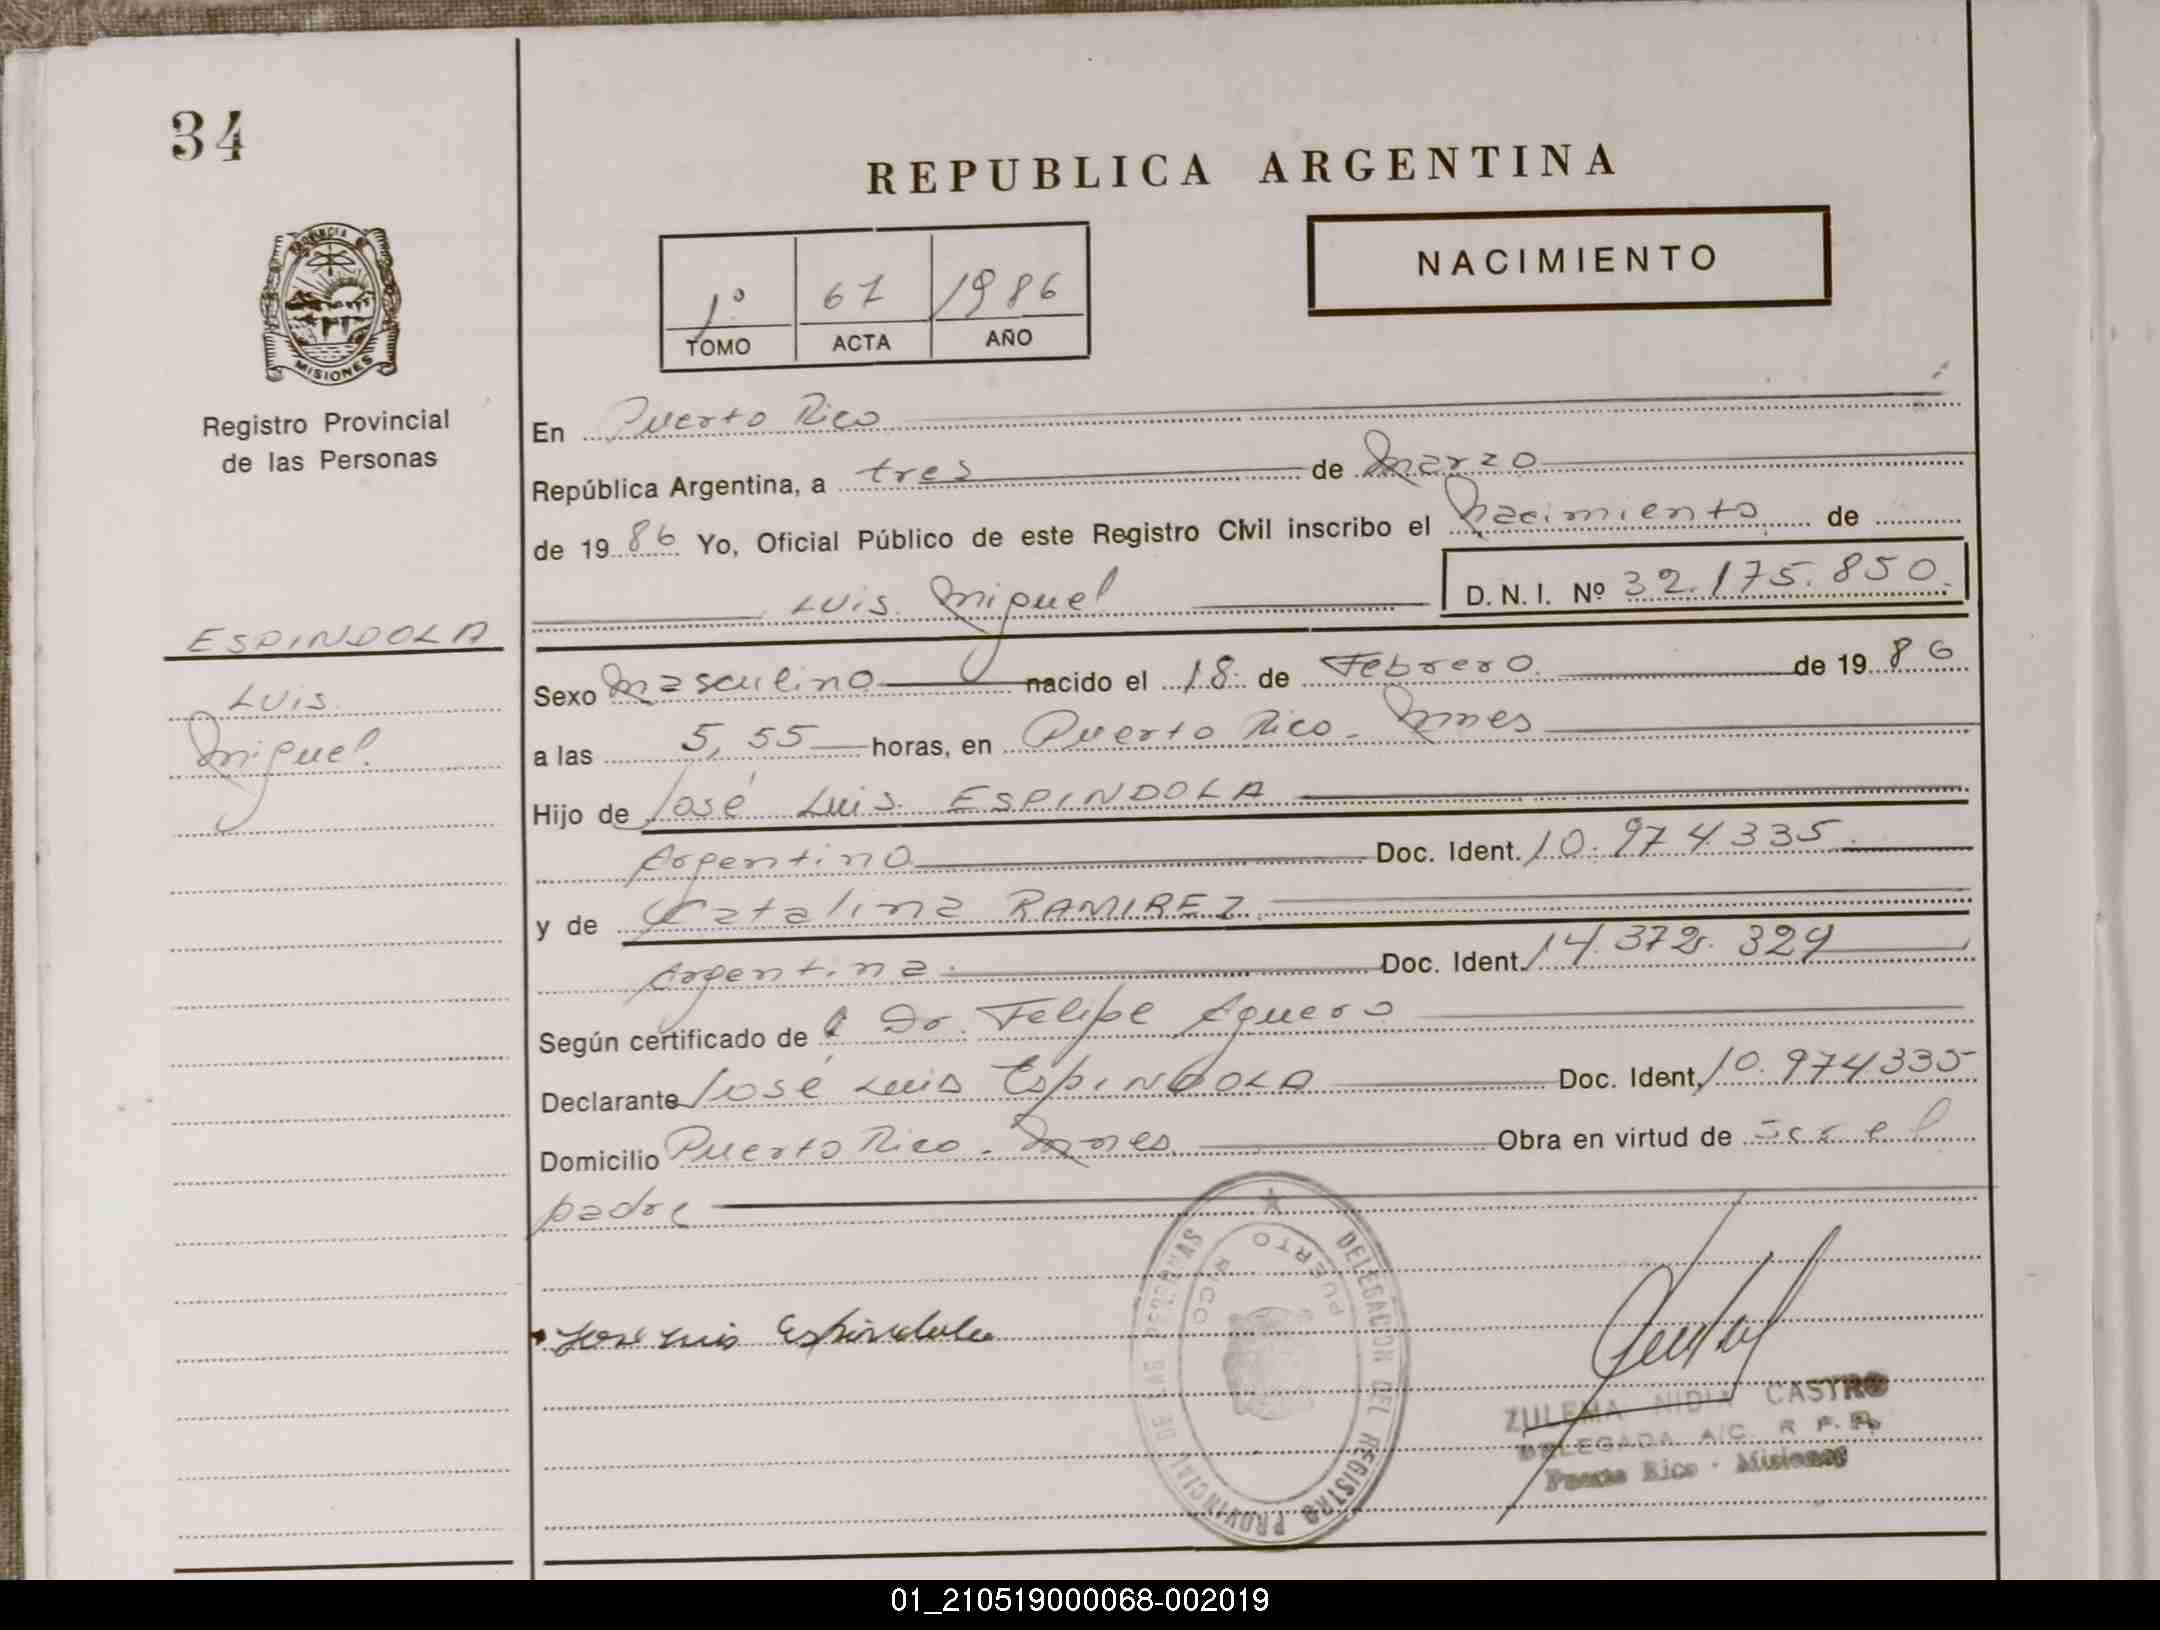 34
REPUBLICA ARGENTINA
NACIMIENTO
1º 67 1986
TOMO ACTA AÑO
PROVINCIA DE
MISIONES
Registro Provincial
de las Personas
ESPINDOLA
Luis
Miguel
En Puerto Rico
República Argentina, a tres de Marzo
de 19 86 Yo, Oficial Público de este Registro Civil inscribo el Nacimiento de
Luis Miguel D. N. I. Nº 32.175.850.
Sexo Masculino nacido el 18 de Febrero de 19 86
a las 5,55 horas, en Puerto Rico - Mnes
Hijo de José Luis ESPINDOLA
Argentino Doc. Ident. 10.974.335
y de Catalina RAMIREZ
Argentina Doc. Ident. 14.372.329
Según certificado de Dr. Felipe Aguero
Declarante José Luis ESPINDOLA Doc. Ident. 10.974335
Domicilio Puerto Rico - Mnes Obra en virtud de ser el
padre
José Luis Espindola
DELEGACION DEL REGISTRO PROVINCIAL DE LAS PERSONAS
PUERTO RICO
ZULEMA NIDIA CASTRO
DELEGADA A/C. R. P. P.
Puerto Rico - Misiones
01_210519000068-002019